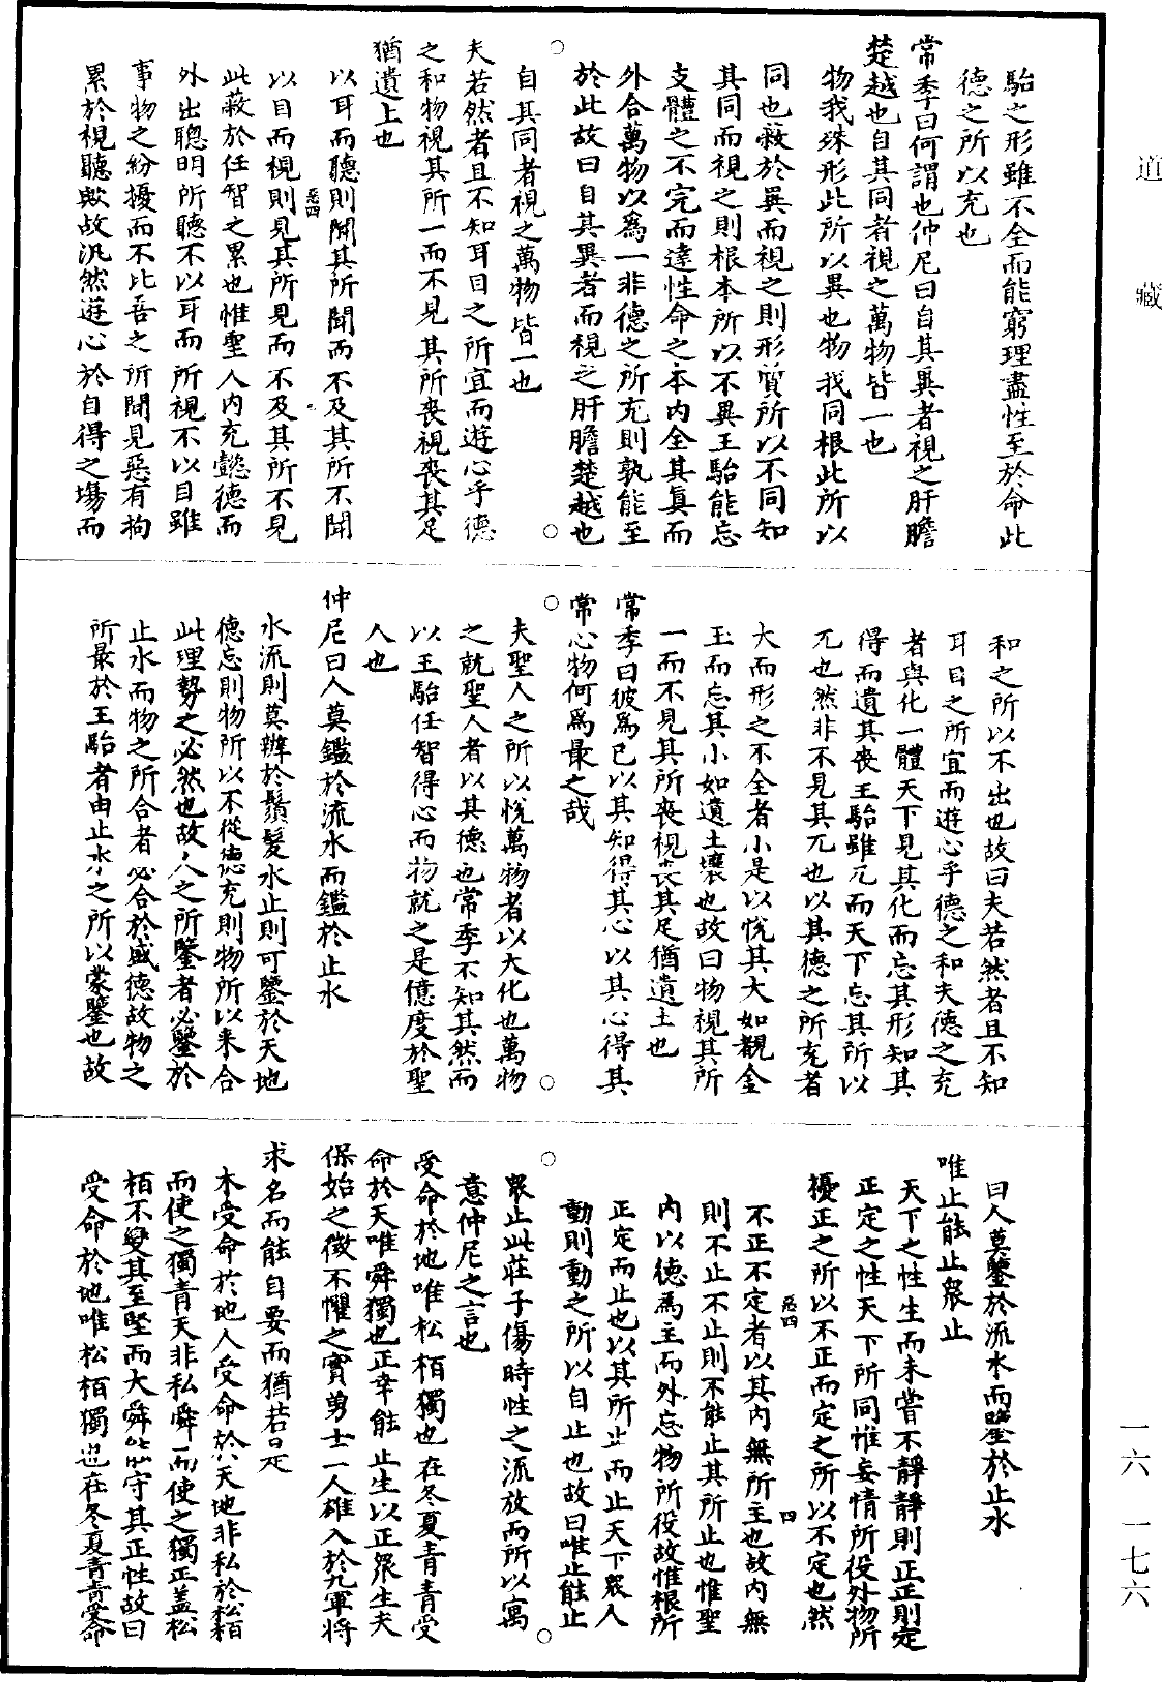 道藏
駘之形雖不全而能窮理盡性至於命此
德之所以充也
常季曰何謂也仲尼曰自其異者視之肝膽
楚越也自其同者視之萬物皆一也
物我殊形此所以異也物我同根此所以
同也蔽於異而視之則形質所以不同知
其同而視之則根本所以不異王駘能忘
支體之不完而達性命之本內全其真而
外合萬物以為一非德之所充則孰能至
於此故曰自其異者而視之肝膽楚越也
自其同者視之萬物皆一也
夫若然者且不知耳目之所宜而遊心乎德
之和物視其所一而不見其所喪視喪其足
猶遺土也
以耳而聽則聞其所聞而不及其所不聞
以目而視則見其所見而不及其所不見
此蔽於任智之累也惟聖人內充懿德而
外出聰明所聽不以耳而所視不以目雖
事物之紛擾而不比吾之所聞見惡有拘
累於視聽歟故汎然遊心於自得之場而
和之所以不出也故曰夫若然者且不知
耳目之所宜而遊心乎德之和夫德之充
者與化一體天下見其化而忘其形知其
得而遺其喪王駘雖兀而天下忘其所以
兀也然非不見其兀也以其德之所充者
大而形之不全者小是以悅其大如觀金
玉而忘其小如遺土壤也故曰物視其所
一而不見其所喪視喪其足猶遺土也
常季曰彼為己以其知得其心以其心得其
常心物何為最之哉
夫聖人之所以悅萬物者以大化也萬物
之就聖人者以其德也常季不知其然而
以王駘任智得心而物就之是億度於聖
人也
仲尼曰人莫鑑於流水而鑑於止水
水流則莫辨於鬚髮水止則可鑒於天地
德忘則物所以不從德充則物所以來合
此理勢之必然也故人之所鑒者必鑒於
止水而物之所合者必合於盛德故物之
所最於王駘者由止水之所以蒙鑒也故
曰人莫鑒於流水而鑒於止水
唯止能止眾止
天下之性生而未嘗不靜靜則正正則定
正定之性天下所同惟妄情所役外物所
擾正之所以不正而定之所以不定也然
不正不定者以其內無所主也故內無
則不止不止則不能止其所止也惟聖
內以德為主而外忘物所役故惟根所
正定而止也以其所止而止天下眾人
動則動之所以自止也故曰唯止能止
眾止此莊子傷時性之流放而所以寓
意仲尼之言也
受命於地唯松栢獨也在冬夏青青受
命於天唯舜獨也正幸能止生以正眾生夫
保始之徵不懼之實勇士一人雄入於九軍將
求名而能自要而猶若是
木受命於地人受命於天地非私於松栢
而使之獨青天非私舜而使之獨正蓋松
栢不變其至堅而大舜能守其正性故曰
受命於地唯松栢獨也在冬夏青青受命
一六 一七六